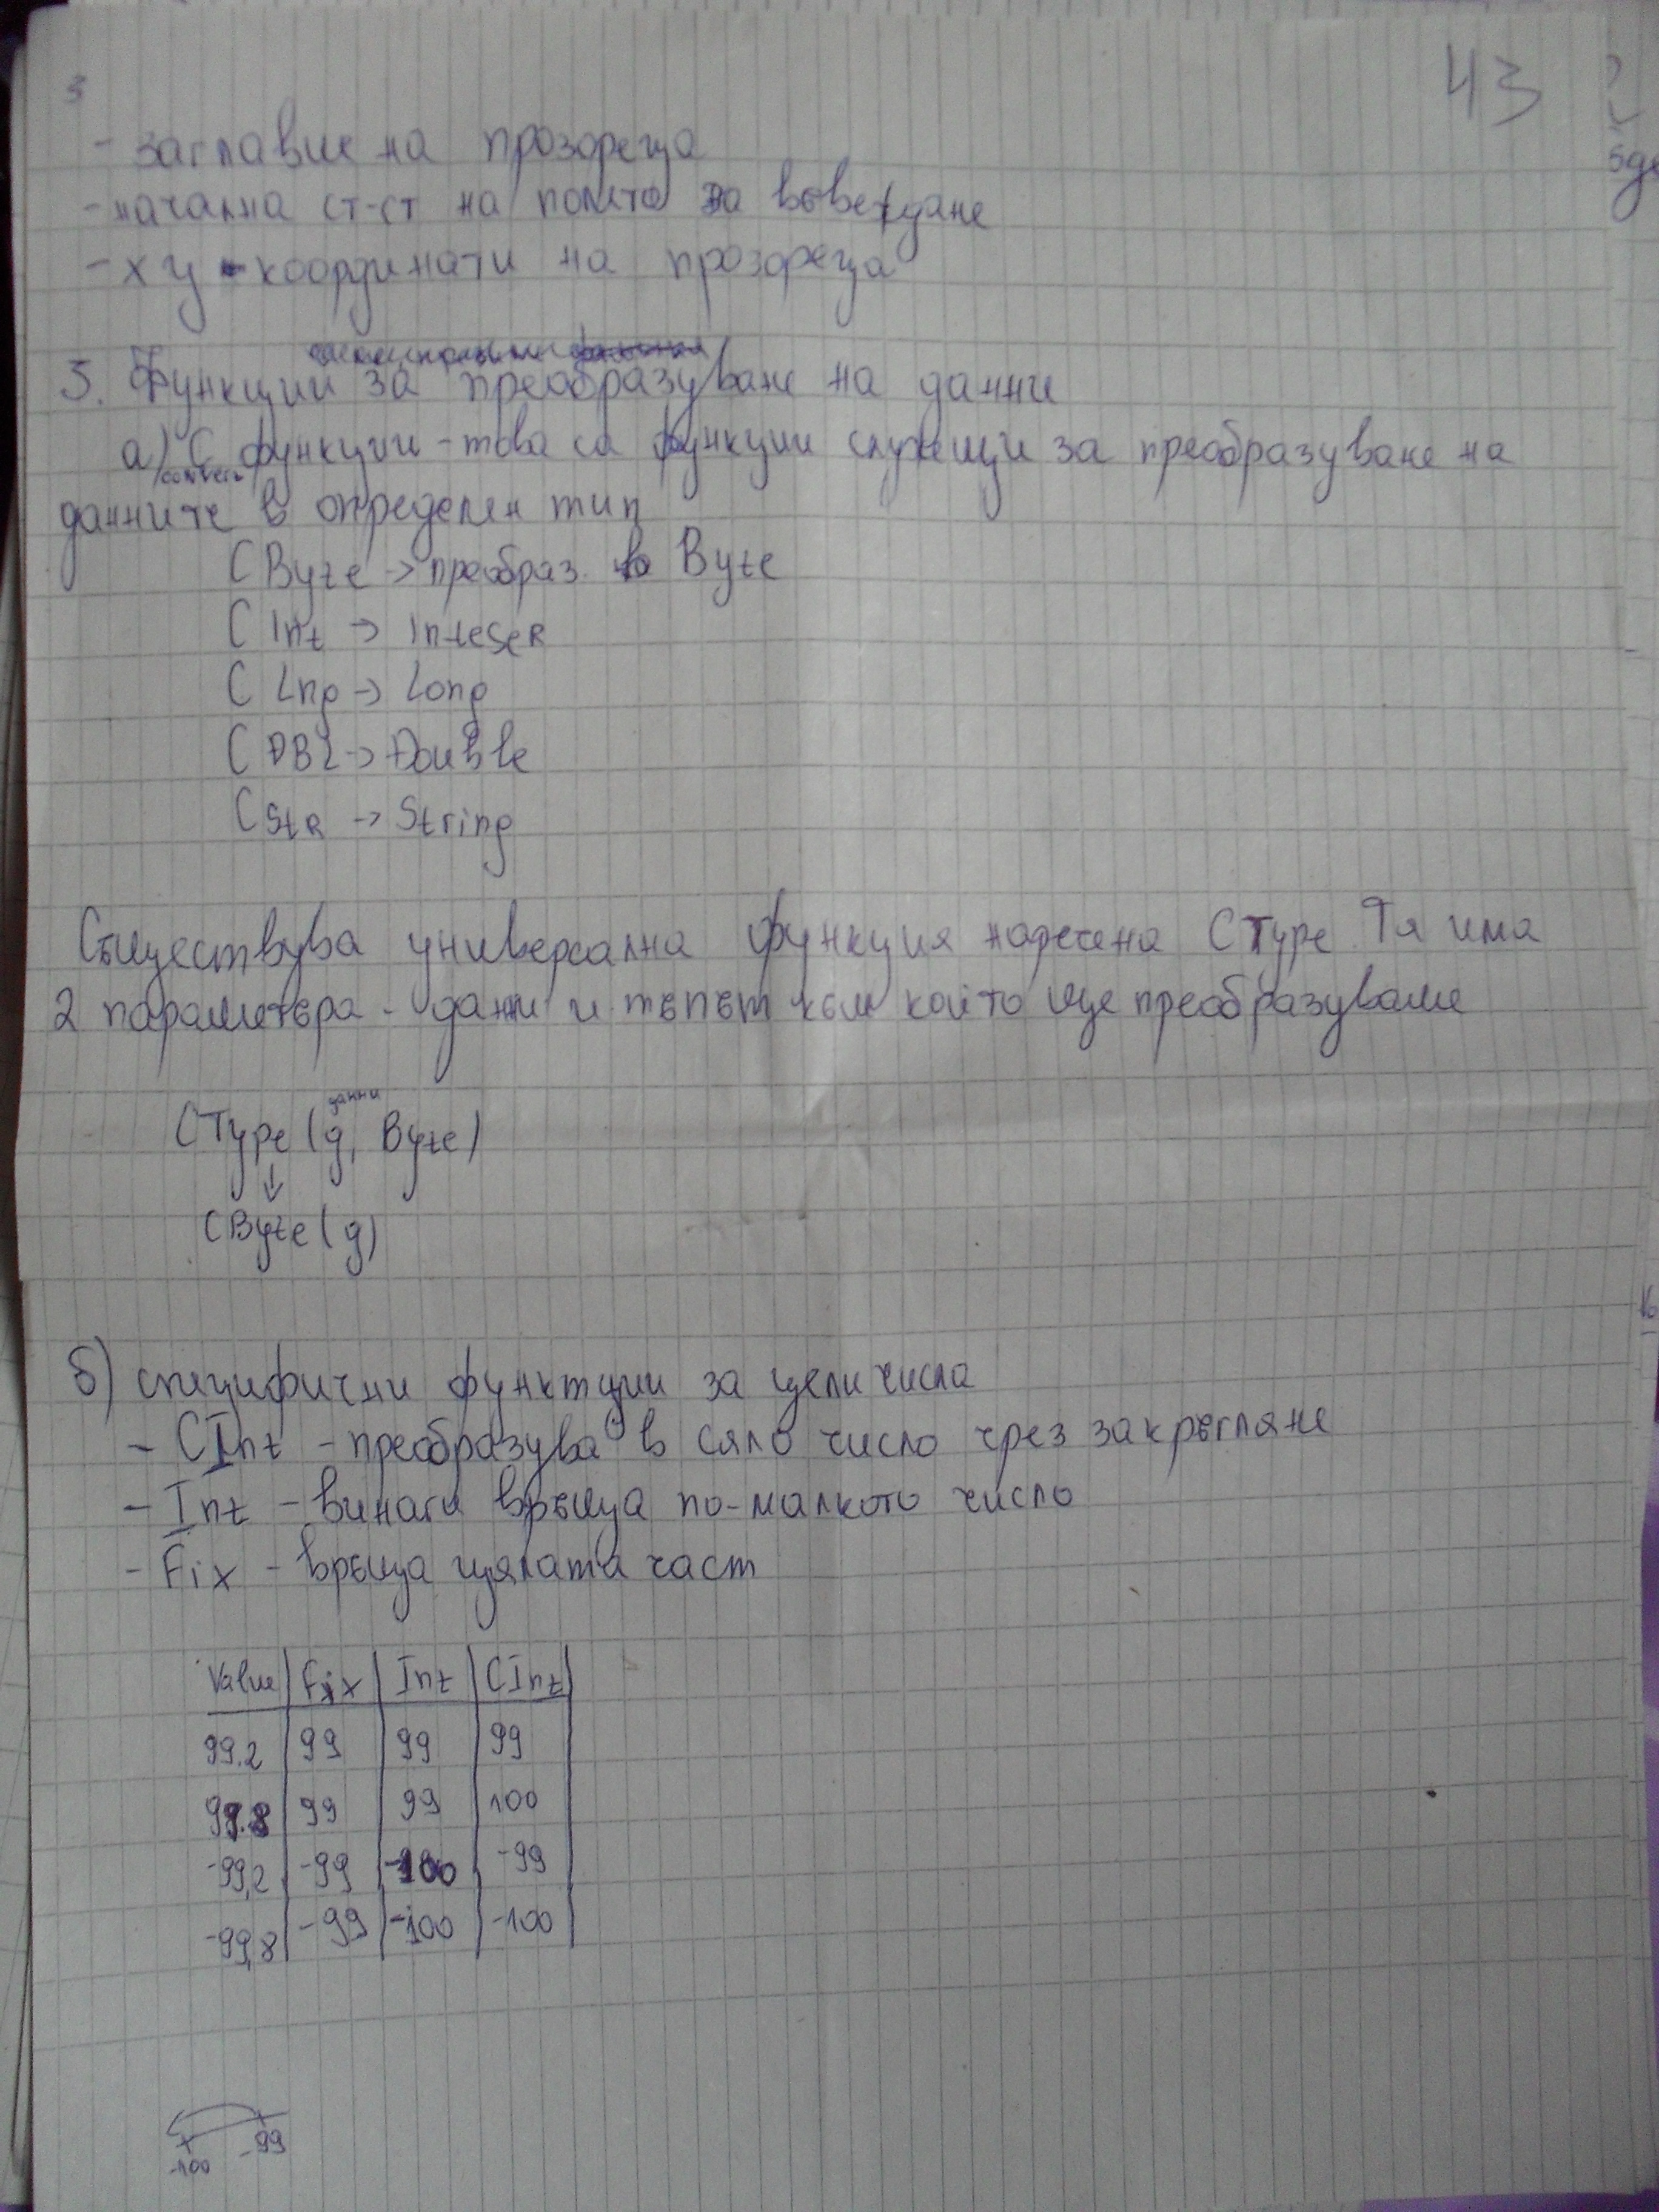 43
3
- заглавие на прозореца
- начална ст-ст на полето за въвеждане
- x y - координати на прозореца
3. Функции за преобразуване на данни
а) C функции - това са функции служещи за преобразуване на
convert
данните в определен тип
CByte -> преобраз. в Byte
CInt -> Integer
CLng -> Long
CDBL -> Double
CStR -> String
Съществува универсална функция наречена CType. Тя има
2 параметъра - данни и типът към който ще преобразуваме
данни
CType(g, Byte)
↓
CByte(g)
б) специфични функтции за цели числа
- CInt - преобразува в сяло число чрез закръгляне
- Int - винаги връща по-малкото число
- Fix - връща цялата част
Value | Fix | Int | CInt
99.2 | 99 | 99 | 99
99.8 | 99 | 99 | 100
-99,2 | -99 | -100 | -99
-99,8 | -99 | -100 | -100
-100 -99